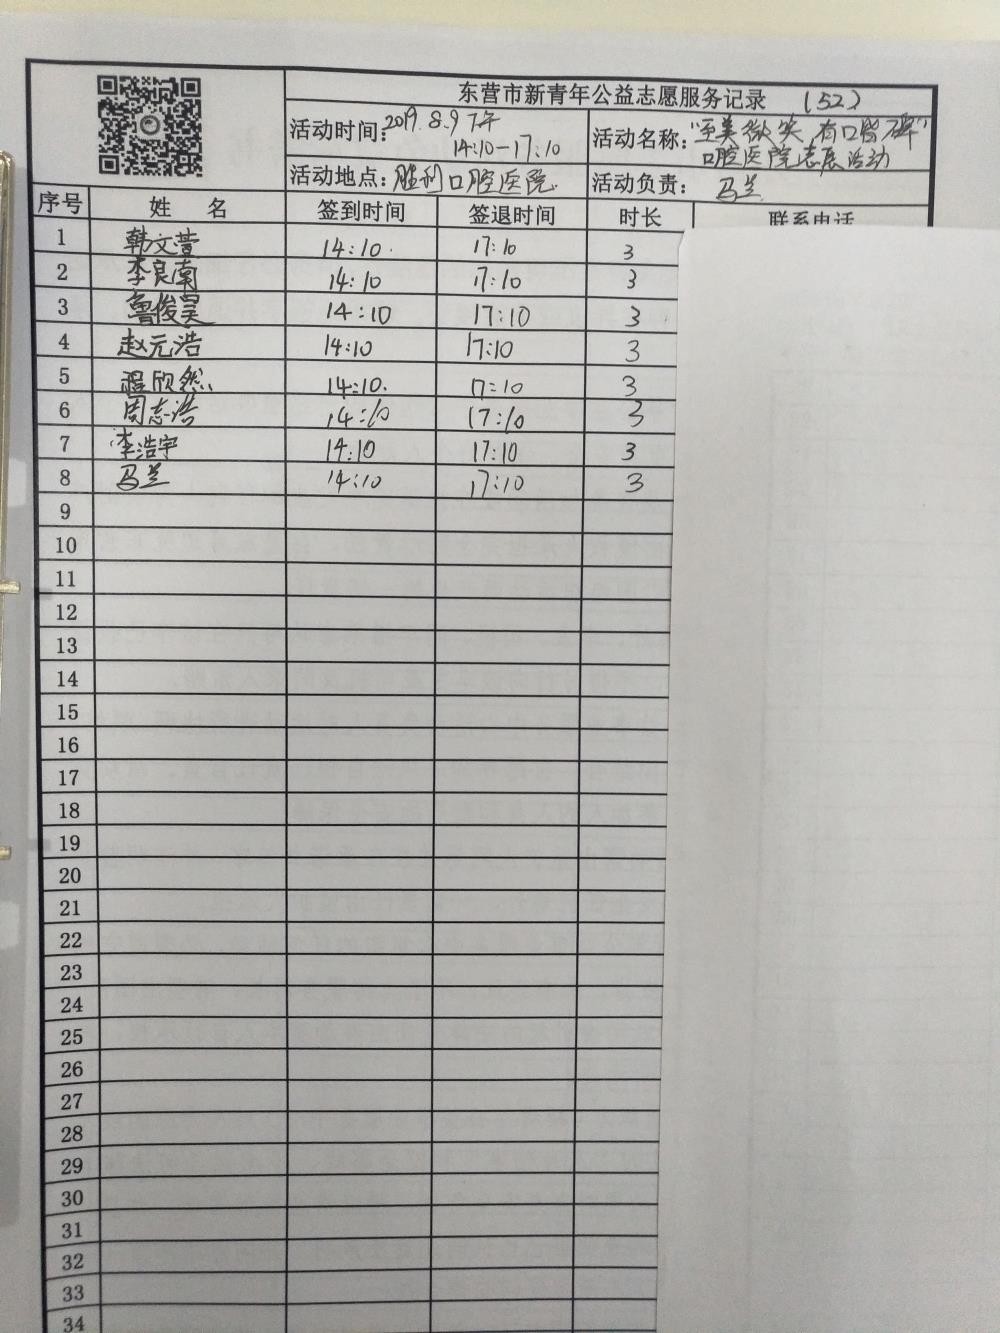 东营市新青年公益志愿服务记录 （52）
活动时间：2019.8.9 下午
14:10-17:10
活动名称："至美微笑，有口皆碑"
口腔医院志愿活动
活动地点：胜利口腔医院
活动负责：马兰
序号 姓 名 签到时间 签退时间 时长 联系电话
1 韩文萱 14:10 17:10 3
2 李良南 14:10 17:10 3
3 鲁俊昊 14:10 17:10 3
4 赵元浩 14:10 17:10 3
5 程欣然 14:10 17:10 3
6 周志浩 14:10 17:10 3
7 李浩宇 14:10 17:10 3
8 马兰 14:10 17:10 3
9
10
11
12
13
14
15
16
17
18
19
20
21
22
23
24
25
26
27
28
29
30
31
32
33
34